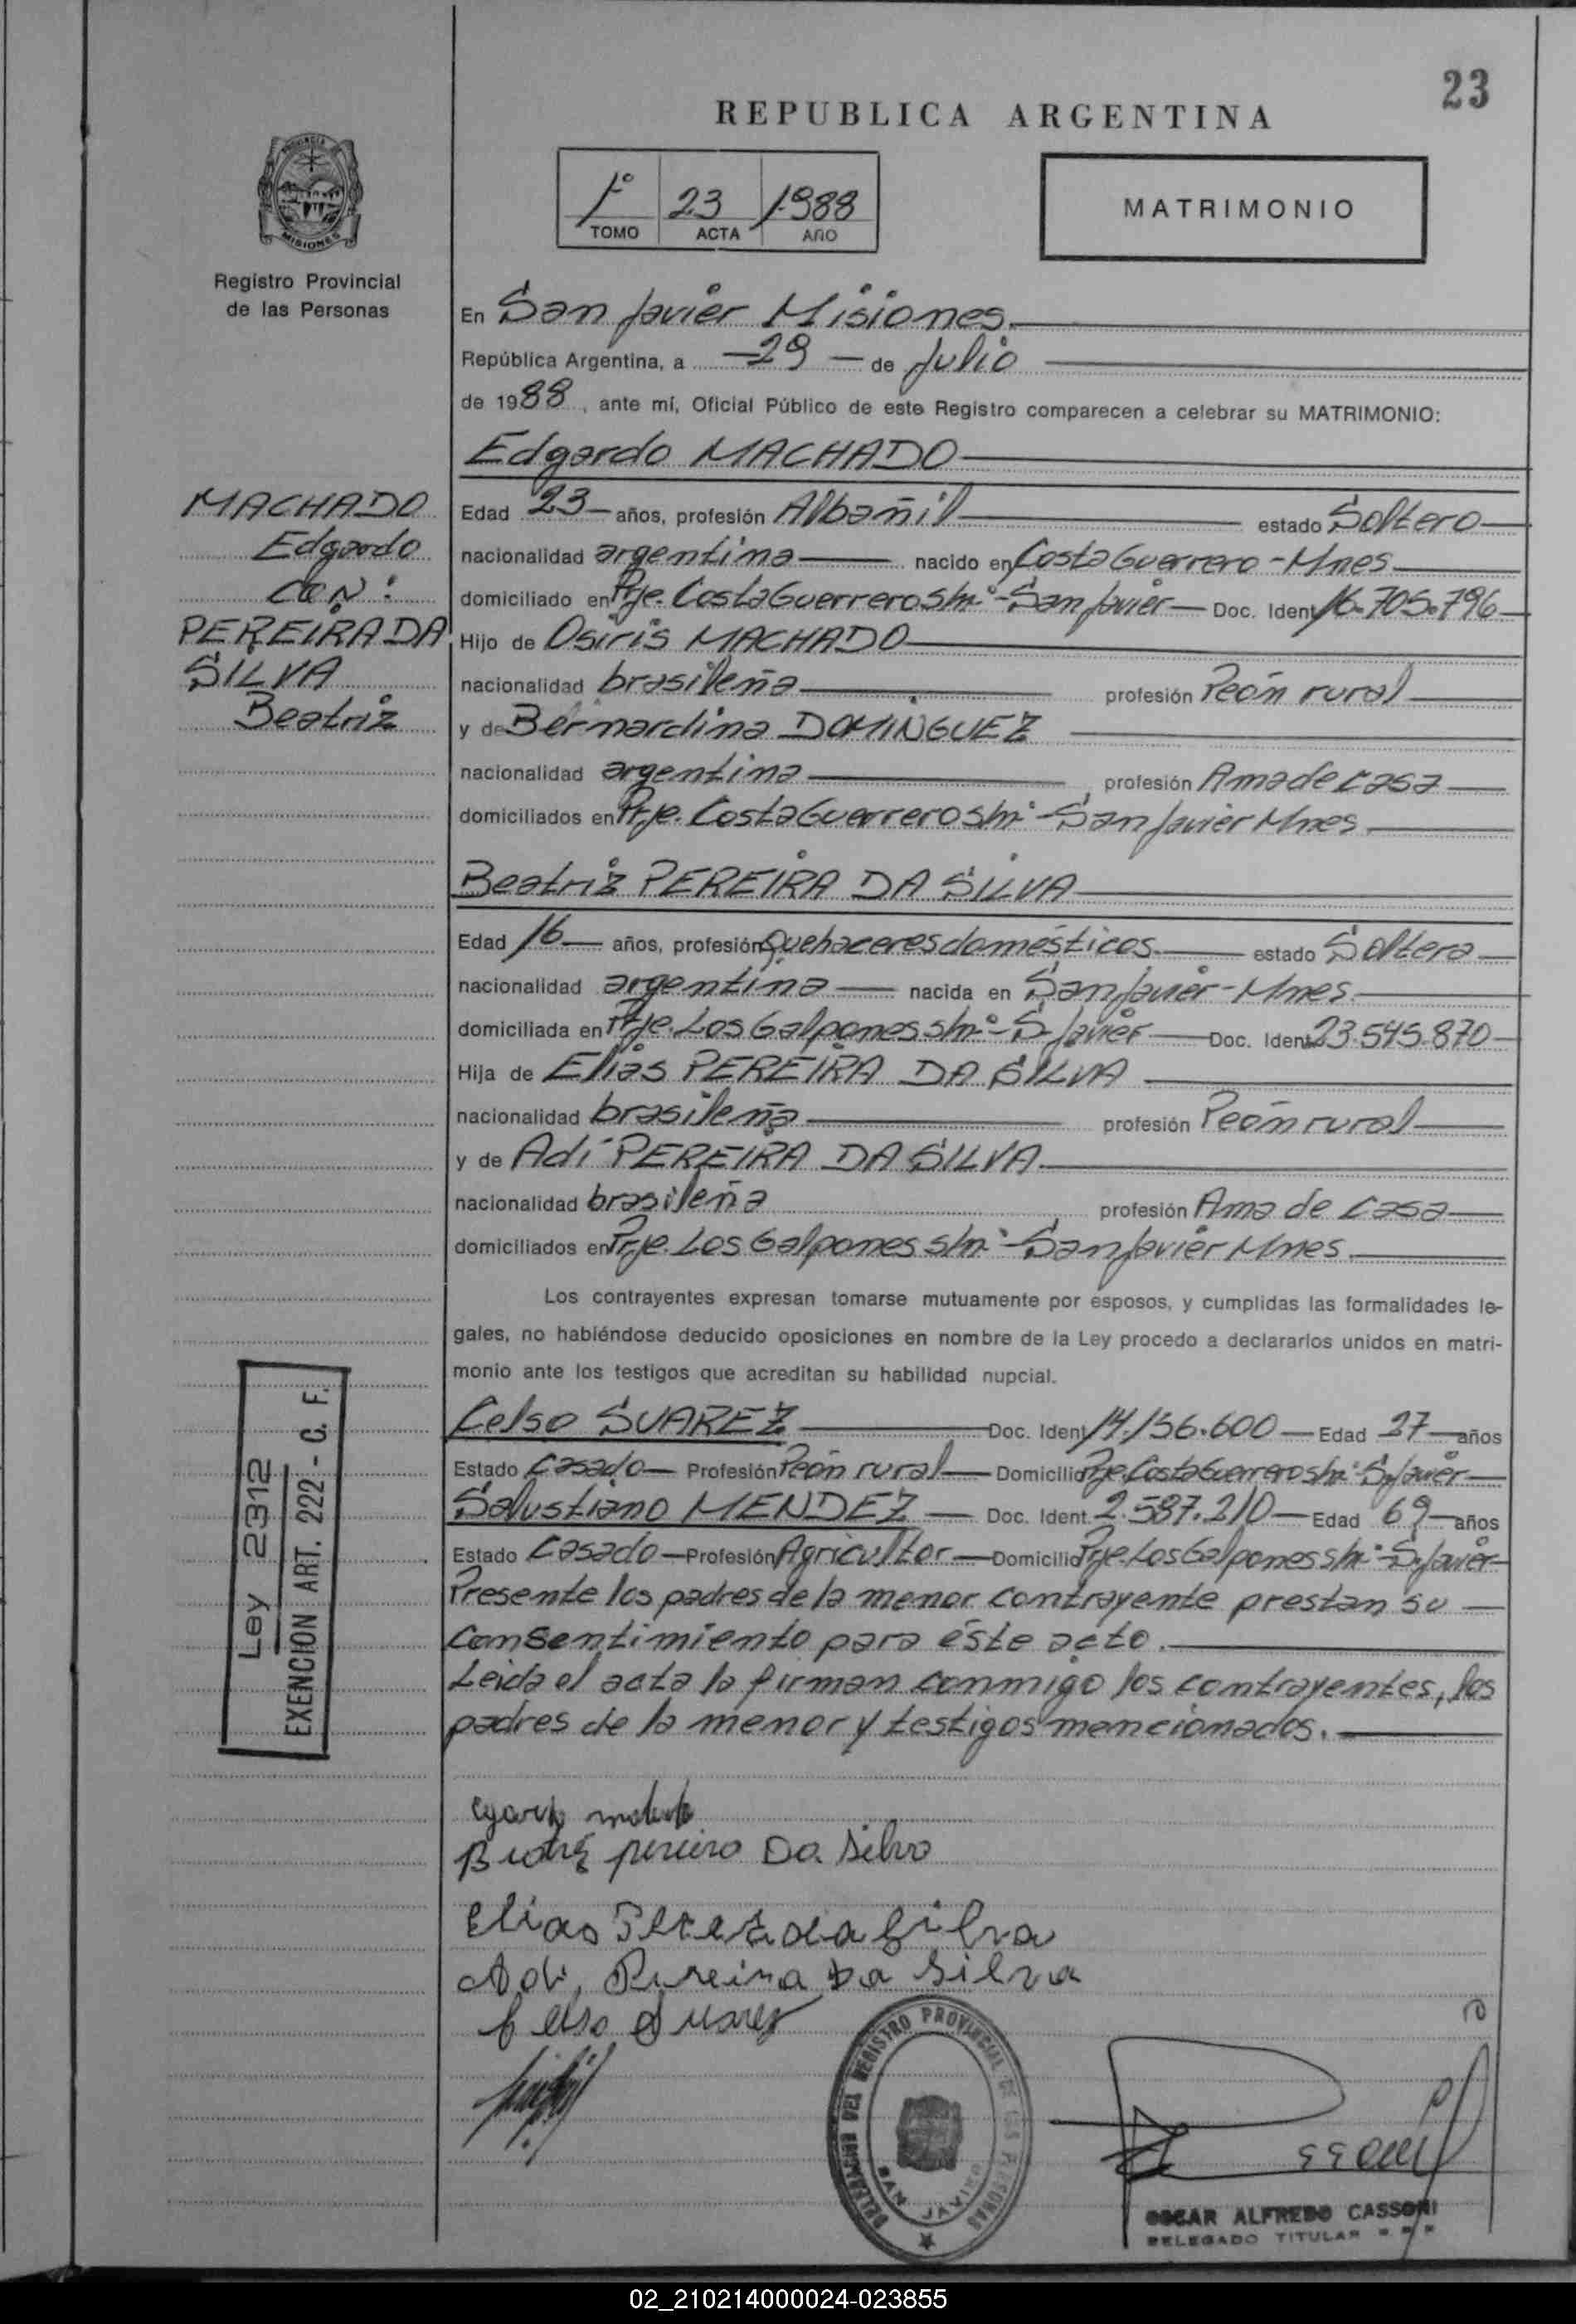 23
REPUBLICA ARGENTINA
1º 23 1988
TOMO ACTA AÑO
MATRIMONIO
MISIONES
Registro Provincial
de las Personas
En San Javier Misiones.
República Argentina, a 29 de Julio
de 1988, ante mí, Oficial Público de este Registro comparecen a celebrar su MATRIMONIO:
Edgardo MACHADO
MACHADO
Edgardo
CON:
PEREIRA DA
SILVA
Beatriz
Edad 23 años, profesión Albañil estado Soltero
nacionalidad argentina nacido en Costa Guerrero - Mnes
domiciliado en Pje. Costa Guerrero s/nº - San Javier Doc. Ident 16.705.796
Hijo de Osiris MACHADO
nacionalidad brasileña profesión Peón rural
y de Bernardina DOMINGUEZ
nacionalidad argentina profesión Ama de casa
domiciliados en Pje. Costa Guerrero s/nº - San Javier Mnes
Beatriz PEREIRA DA SILVA
Edad 16 años, profesión Quehaceres domésticos estado Soltera
nacionalidad argentina nacida en San Javier - Mnes
domiciliada en Pje. Los Galpones s/nº - S. Javier Doc. Ident 23.545.870
Hija de Elías PEREIRA DA SILVA
nacionalidad brasileña profesión Peón rural
y de Adí PEREIRA DA SILVA
nacionalidad brasileña profesión Ama de casa
domiciliados en Pje. Los Galpones s/nº - San Javier Mnes
Los contrayentes expresan tomarse mutuamente por esposos, y cumplidas las formalidades le-
gales, no habiéndose deducido oposiciones en nombre de la Ley procedo a declararlos unidos en matri-
monio ante los testigos que acreditan su habilidad nupcial.
Celso SUAREZ Doc. Ident 14.156.600 Edad 27 años
Estado Casado Profesión Peón rural Domicilio Pje. Costa Guerrero s/nº - S. Javier
Salustiano MENDEZ Doc. Ident. 2.587.210 Edad 69 años
Estado Casado Profesión Agricultor Domicilio Pje. Los Galpones s/nº - S. Javier
Presente los padres de la menor contrayente prestan su
consentimiento para éste acto.
Leida el acta la firman conmigo los contrayentes, los
padres de la menor y testigos mencionados.
Ley 2312
EXENCION ART. 222 - C. F.
Pereira Da Silva
Elias Pereira da Silva
Adi, Pereira Da Silva
Celso Suarez
DELEGACION DEL REGISTRO PROVINCIAL DE LAS PERSONAS
SAN JAVIER
OSCAR ALFREDO CASSONI
DELEGADO TITULAR
02_210214000024-023855